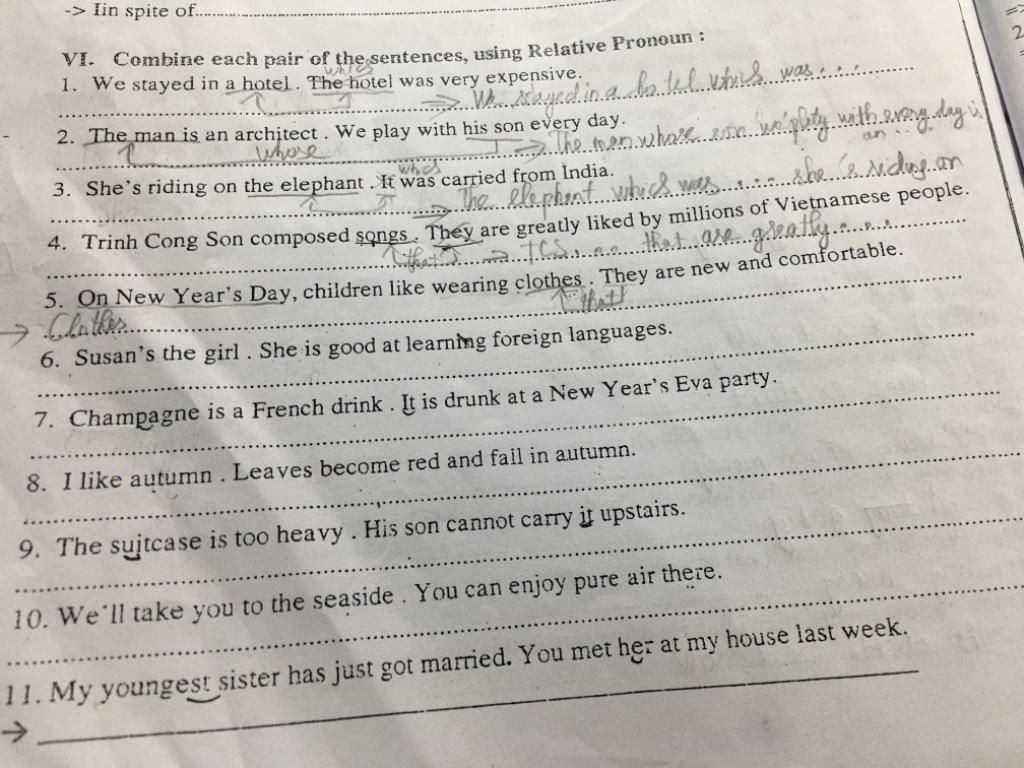 -> Iin spite of..............................
VI. Combine each pair of the sentences, using Relative Pronoun :
which
1. We stayed in a hotel . The hotel was very expensive.
=> We stayed in a hotel which was . . .
2. The man is an architect . We play with his son every day.
whose => The man whose son we play with every day is an . . .
which
3. She's riding on the elephant . It was carried from India.
The elephant which was . . . . she's riding on
4. Trinh Cong Son composed songs . They are greatly liked by millions of Vietnamese people.
that -> TCS . . . that are greatly . . . .
5. On New Year's Day, children like wearing clothes . They are new and comfortable.
-> Clothes that
6. Susan's the girl . She is good at learning foreign languages.
7. Champagne is a French drink . It is drunk at a New Year's Eva party.
8. I like autumn . Leaves become red and fail in autumn.
9. The suitcase is too heavy . His son cannot carry it upstairs.
10. We'll take you to the seaside . You can enjoy pure air there.
11. My youngest sister has just got married. You met her at my house last week.
->
2